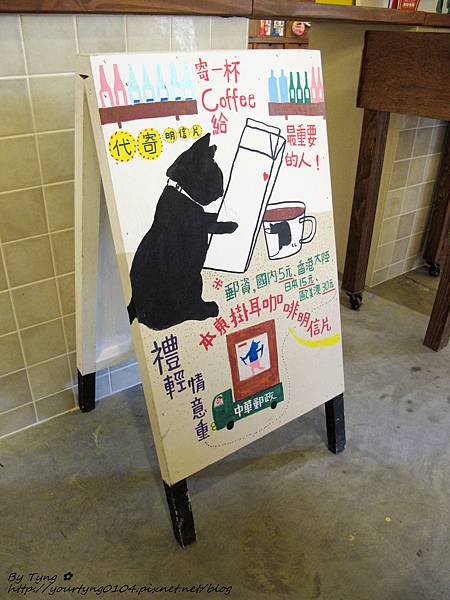 寄一杯
Coffee
給
最重要
的人！
代寄明信片
※郵資：國內5元、香港大陸
日本15元、
歐美澳30元
本東掛耳咖啡明信片
禮輕
情意重
中華郵政
By Tyng ✿
http://yourtyng0104.pixnet.net/blog